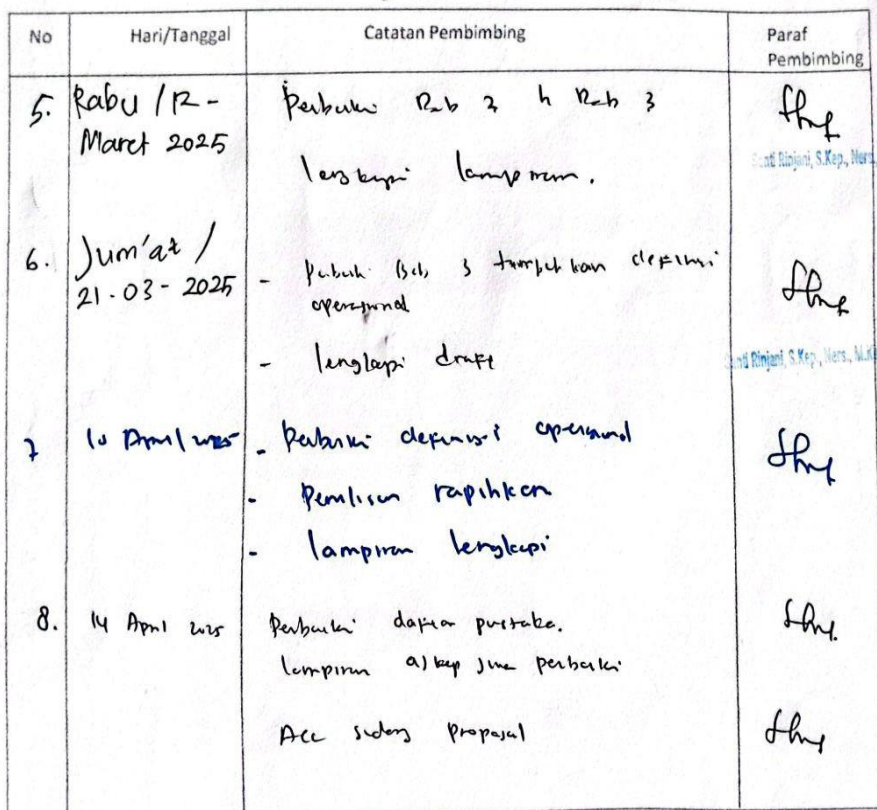 No Hari/Tanggal Catatan Pembimbing Paraf Pembimbing
5. Rabu / 12 - Maret 2025
Perbaiki Bab 2 & Bab 3
lengkapi lampiran.
Rinjani, S.Kep., Ners
6. Jum'at / 21-03-2025
- Bab 3 definisi
operasional
- lengkapi draft
Rinjani, S.Kep., Ners., M.K
7 10 April 2025
- Perbaiki definisi operasional
- Penulisan rapihkan
- lampiran lengkapi
8. 14 April 2025
Perbaiki daftar pustaka.
lampiran askep perbaiki
Acc sidang proposal